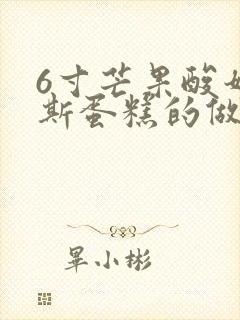 6寸芒果酸奶
斯蛋糕的做
畢小彬